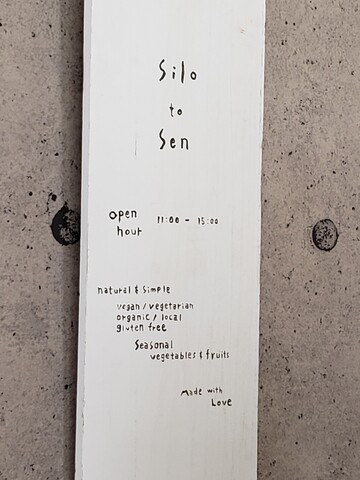 Silo
to
Sen
open
hour 11:00 - 15:00
natural & simple
vegan / vegetarian
organic / local
gluten free
Seasonal
vegetables & fruits
Made with
Love